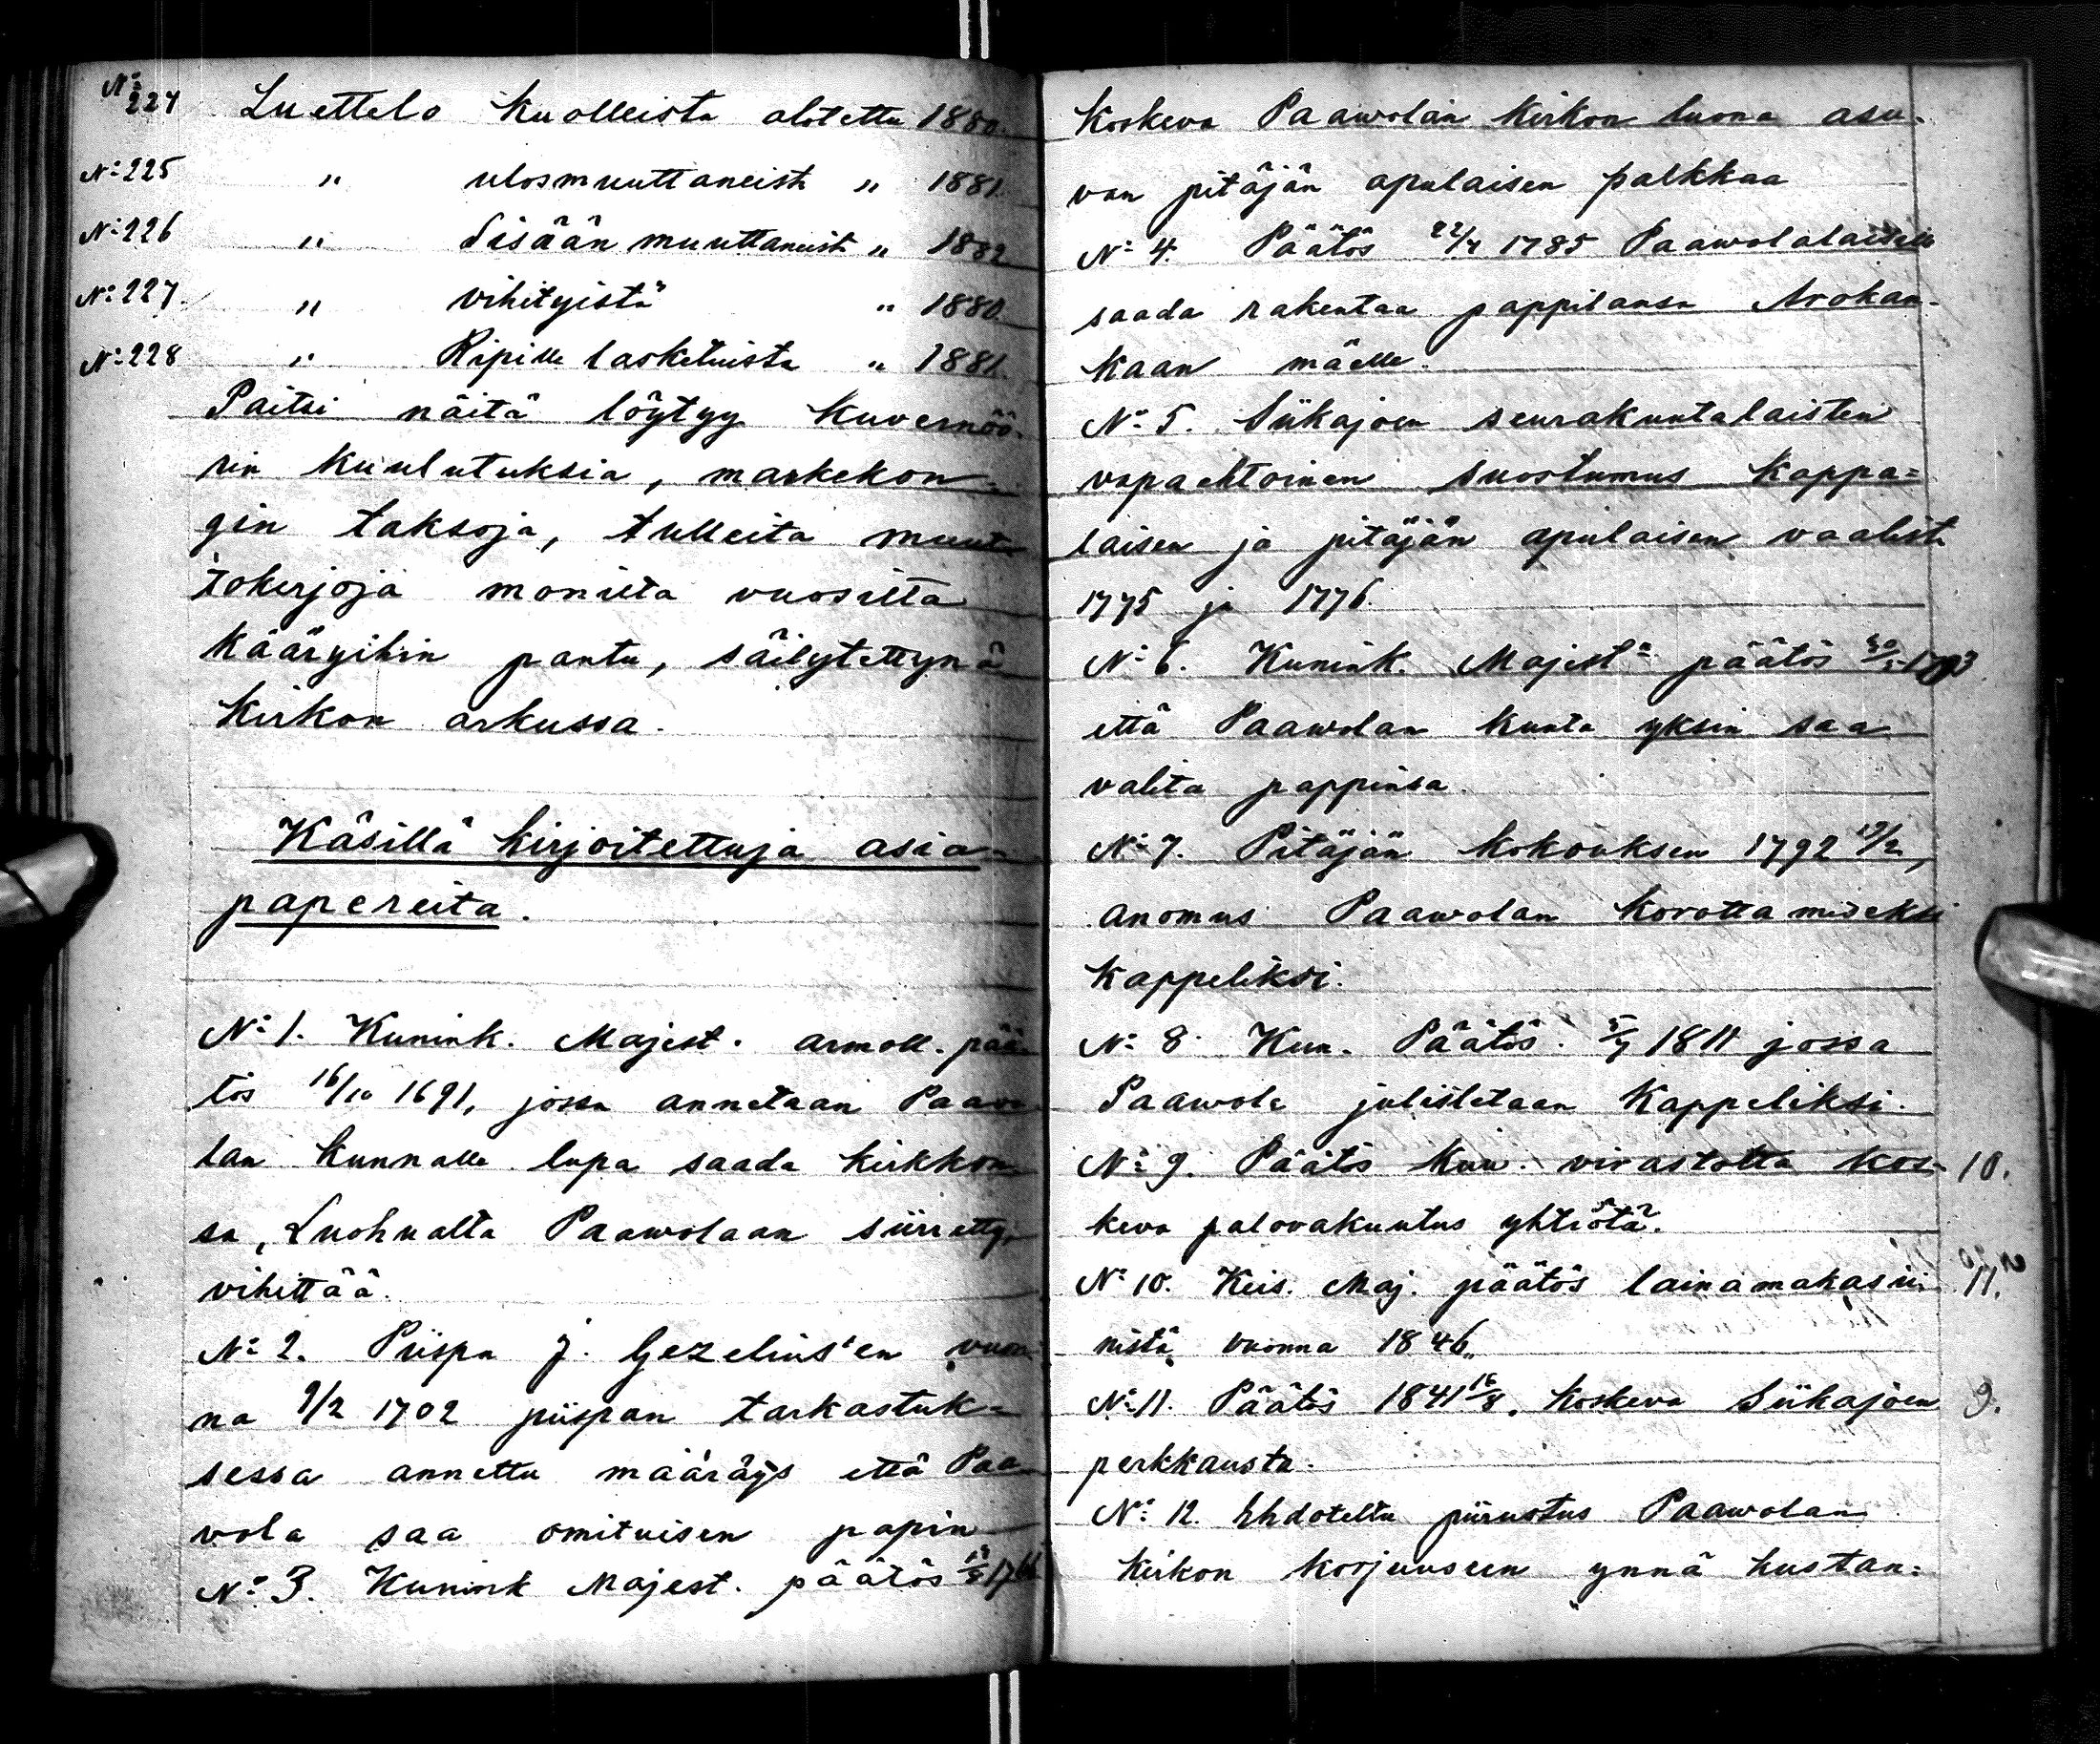 No 224 Luettelo Kuolleista alotettu 1880.
No 225 " ulosmuuttaneista " 1881.
No 226 " Sisään muuttaneista " 1882
No 227. " vihityistä " 1880.
No 228 " Ripille lasketuista " 1881.
Paitsi näitä löytyy Kuvernöö-
rin kuulutuksia, markekon-
gin taksoja, tulleita muut-
tokirjoja monilta vuosilta
kääryihin pantu, säilytettynä
Kirkon arkussa.
Käsillä kirjoitettuja asia-
papereita.
No 1. Kunink. Majest. armoll. pää-
tös 16/10 1691, jossa annetaan Paavo
lan kunnalle lupa saada kirkkon-
sa, Luohualta Paawolaan siirretty,
vihittää.
No 2. Piispa J. Gezelius'en vuon
na 9/2 1702 piispan tarkastuk-
sessa annettu määräys että Paa
vola saa omituisen papin
No 3. Kunink Majest. päätös 1766
Koskeva Paawolan kirkon luona asu-
van pitäjän apulaisen palkkaa
No 4. Päätös 22/4 1785 Paawolalaisille
saada rakentaa pappilansa Arokan-
kaan mäelle.
No 5. Siikajoen seurakuntalaisten
vapaehtoinen suostumus Kappa=
laisen ja pitäjän apulaisen vaalista
1775 ja 1776.
No 6. Kunink. Majest: päätös 1793
että Paawolan kunta yksin saa
valita pappinsa.
No 7. Pitäjän kokouksen 1792 19/2,
anomus Paawolan korottamiseksi
Kappeliksi.
No 8. Kun. Päätös 5/7 1811 jossa
Paawola julistetaan Kappeliksi.
No 9. Päätös Kuv. virastolta kos- 10.
keva palovakuutus yhtiötä.
No 10. Keis. Maj. päätös lainamakasii- 11.
nista vuonna 1846.
No 11. Päätös 1841 16/8. koskeva Siikajoen 9.
perkkausta.
No 12. Ehdoteltu piirustus Paawolan
kirkon korjuuseen ynnä kustan=